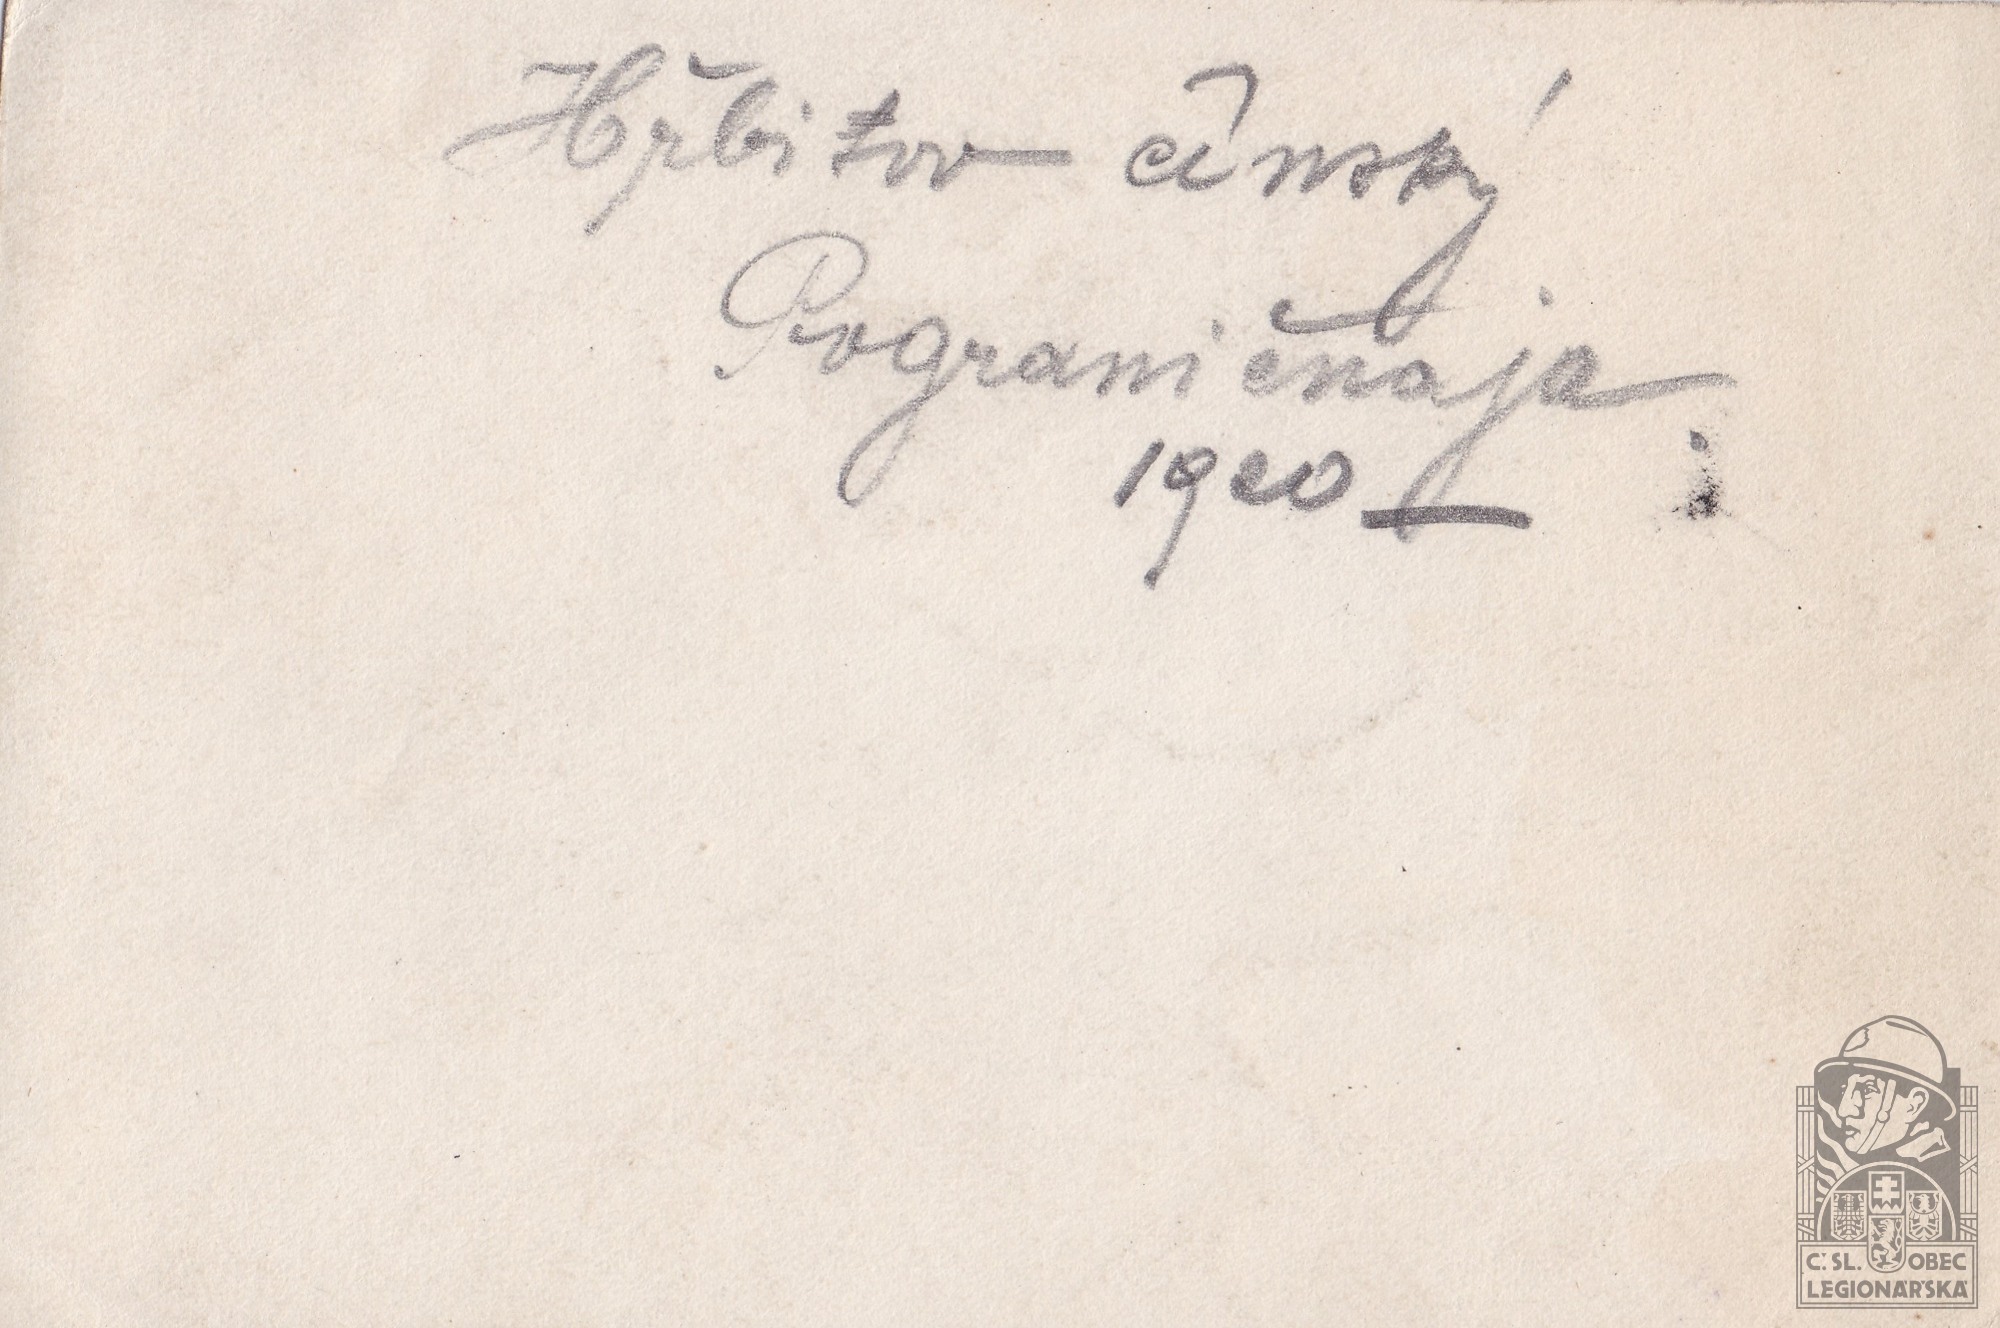 Hřbitov čínský
Pograničnaja
1920
Č. SL. OBEC
LEGIONÁŘSKÁ